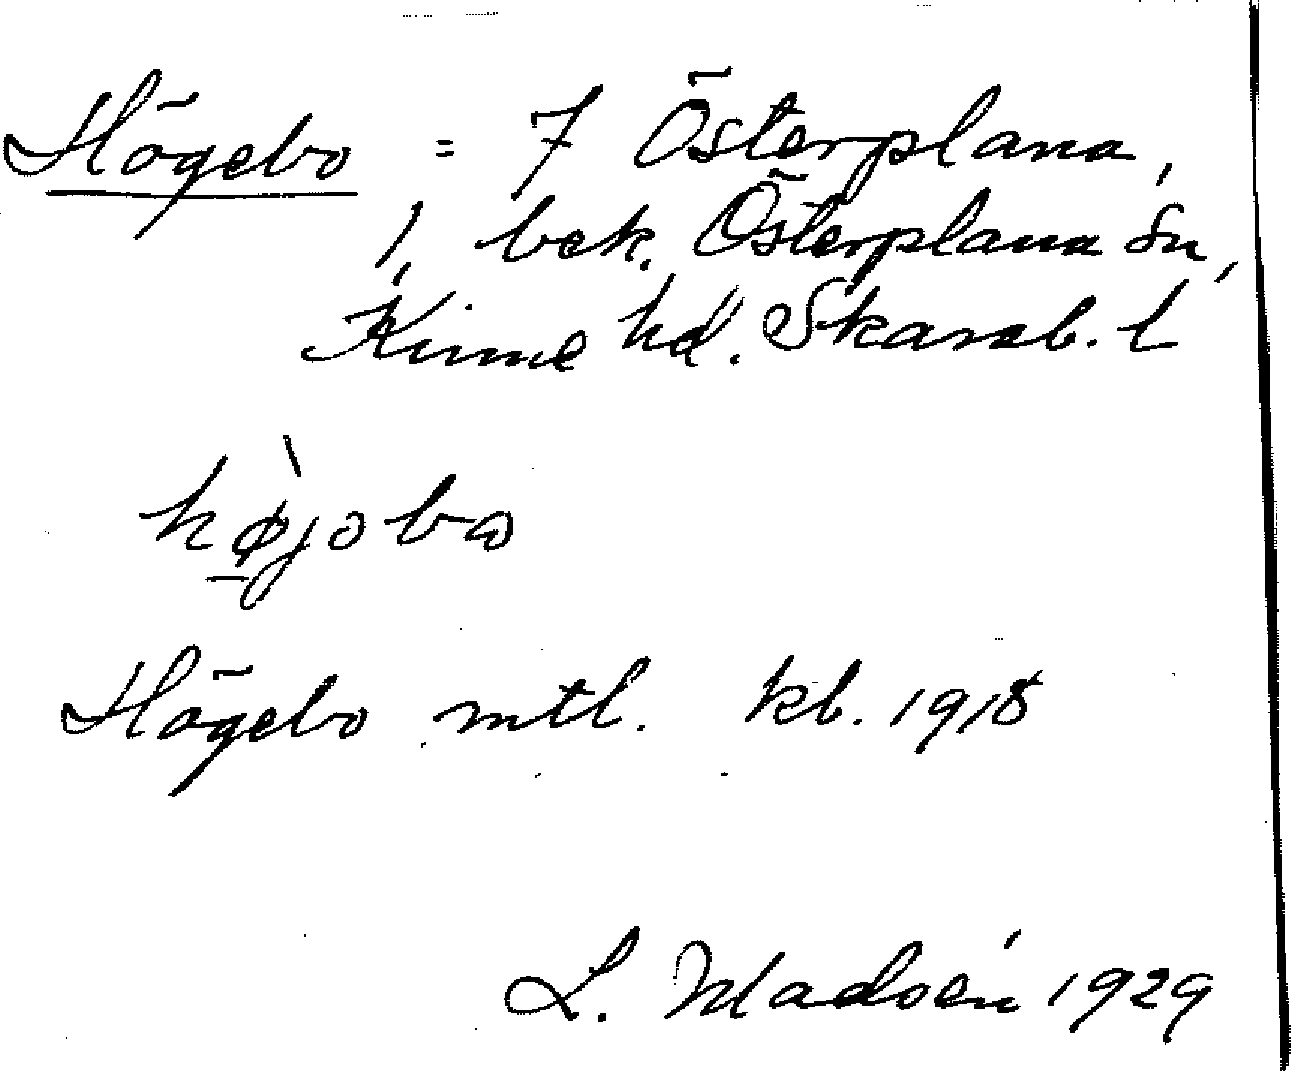 Högebo = 7 Österplana,
1, bek. Österplana sn,
Kinne hd. Skarab. l
hø̀jobo
Högebo mtl. kb. 1918
L. 1929